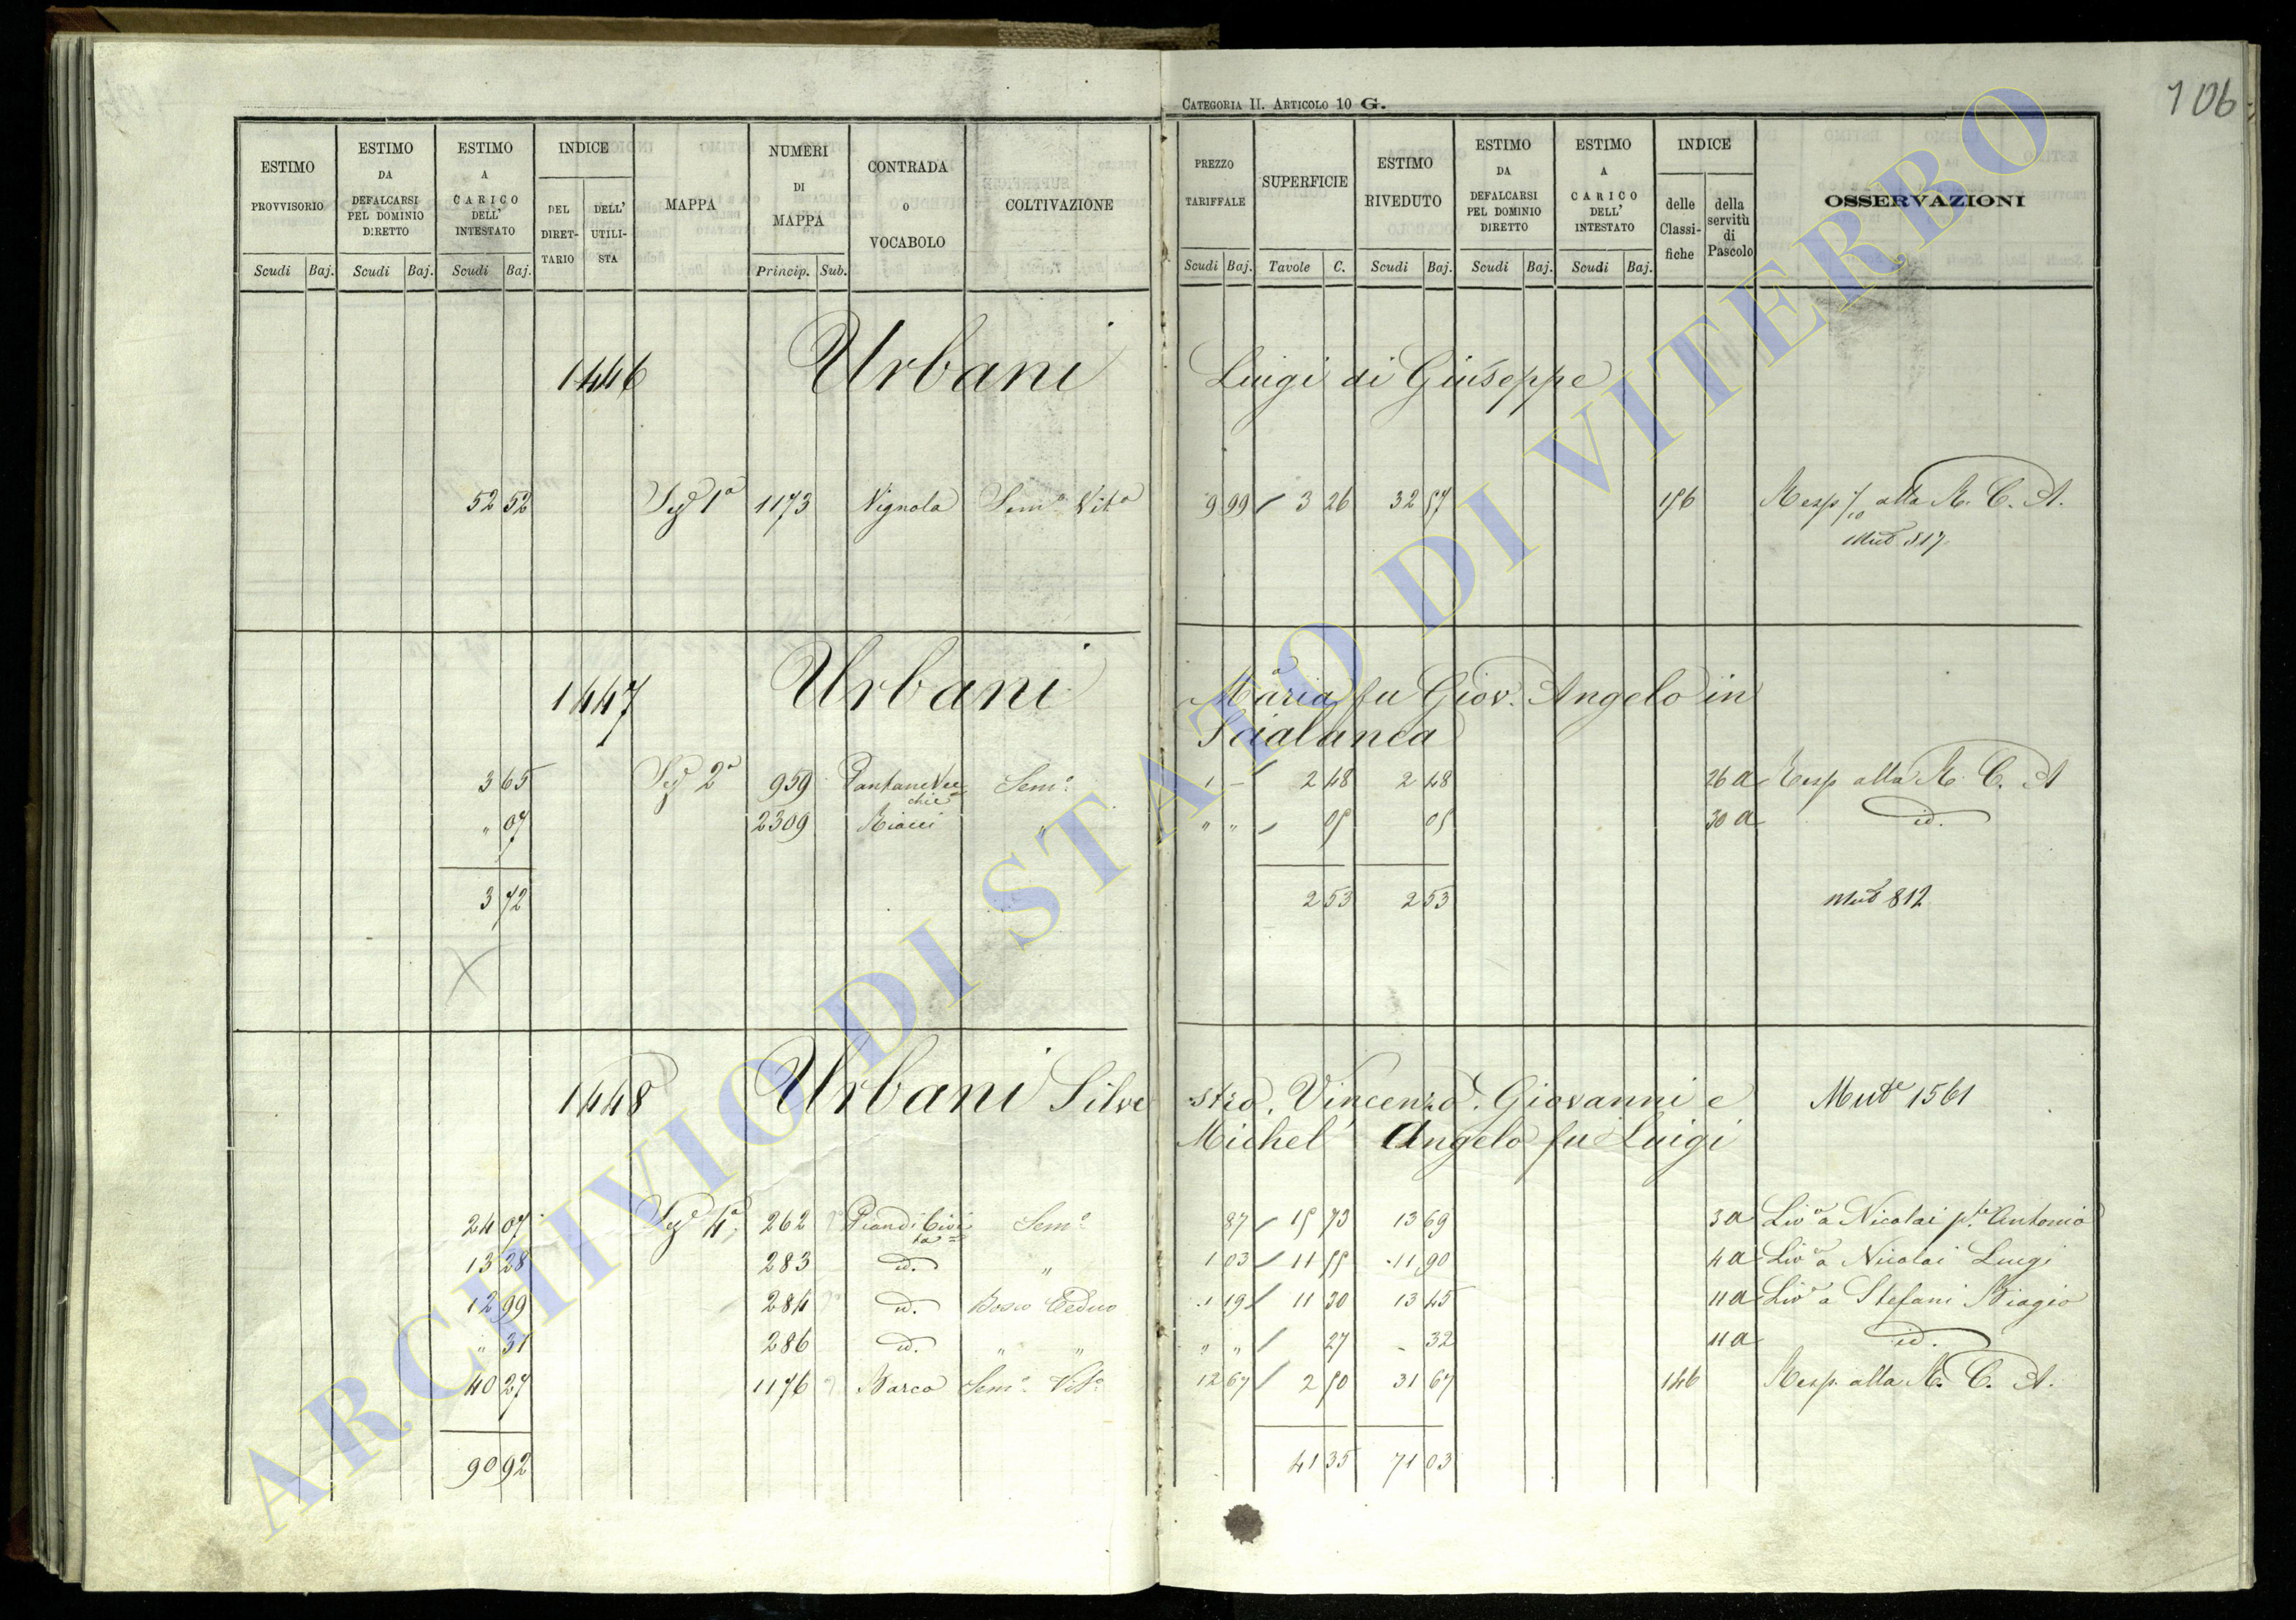 CATEGORIA II. ARTICOLO 10 G.
106
ESTIMO PROVVISORIO
ESTIMO DA DEFALCARSI PEL DOMINIO DIRETTO
ESTIMO A CARICO DELL' INTESTATO
INDICE
DEL DIRET-TARIO
DELL' UTILI-STA
MAPPA
NUMERI DI MAPPA
CONTRADA o VOCABOLO
COLTIVAZIONE
PREZZO TARIFFALE
SUPERFICIE
ESTIMO RIVEDUTO
ESTIMO DA DEFALCARSI PEL DOMINIO DIRETTO
ESTIMO A CARICO DELL' INTESTATO
INDICE
delle Classi-fiche
della servitù di Pascolo
OSSERVAZIONI
Scudi Baj. Scudi Baj. Scudi Baj. Princip. Sub. Scudi Baj. Tavole C. Scudi Baj. Scudi Baj. Scudi Baj.
1446 Urbani Luigi di Giuseppe
52 52 Sez 1a 1173 Vignola Sem° Vito 9 99 / 3 26 32 57 156 Resp 1/10 alla R. C. A.
Mut 817
1447 Urbani Maria fu Giov. Angelo in
Scialanca
3 65 Sez 2a 959 Pantane Vec Sem° 1 - / 2 48 2 48 26 a Resp alla R. C. A
chie
" 07 2309 Riacci " " " / 05 05 30 a id.
3 72 2 53 2 53 Mut 812
1448 Urbani Silve stro, Vincenzo, Giovanni e Mute 1561
Michel' Angelo fu Luigi
24 07 Sez 4a 262 Piandi Civi Sem° 87 / 15 73 13 69 3 a Livo a Nicolai pte Antonio
ta
13 28 283 id. " 1 03 / 11 55 11 90 4 a Livo a Nicolai Luigi
12 99 284 id. Bosco Ceduo 1 19 / 11 30 13 45 11 a Livo a Stefani Biagio
" 31 286 id. " " " " / 27 - 32 11 a id.
40 27 1176 Barco Sem° Vito 12 67 / 2 50 31 67 146 Resp. alla R. C. A.
90 92 41 35 71 03
ARCHIVIO DI STATO DI VITERBO